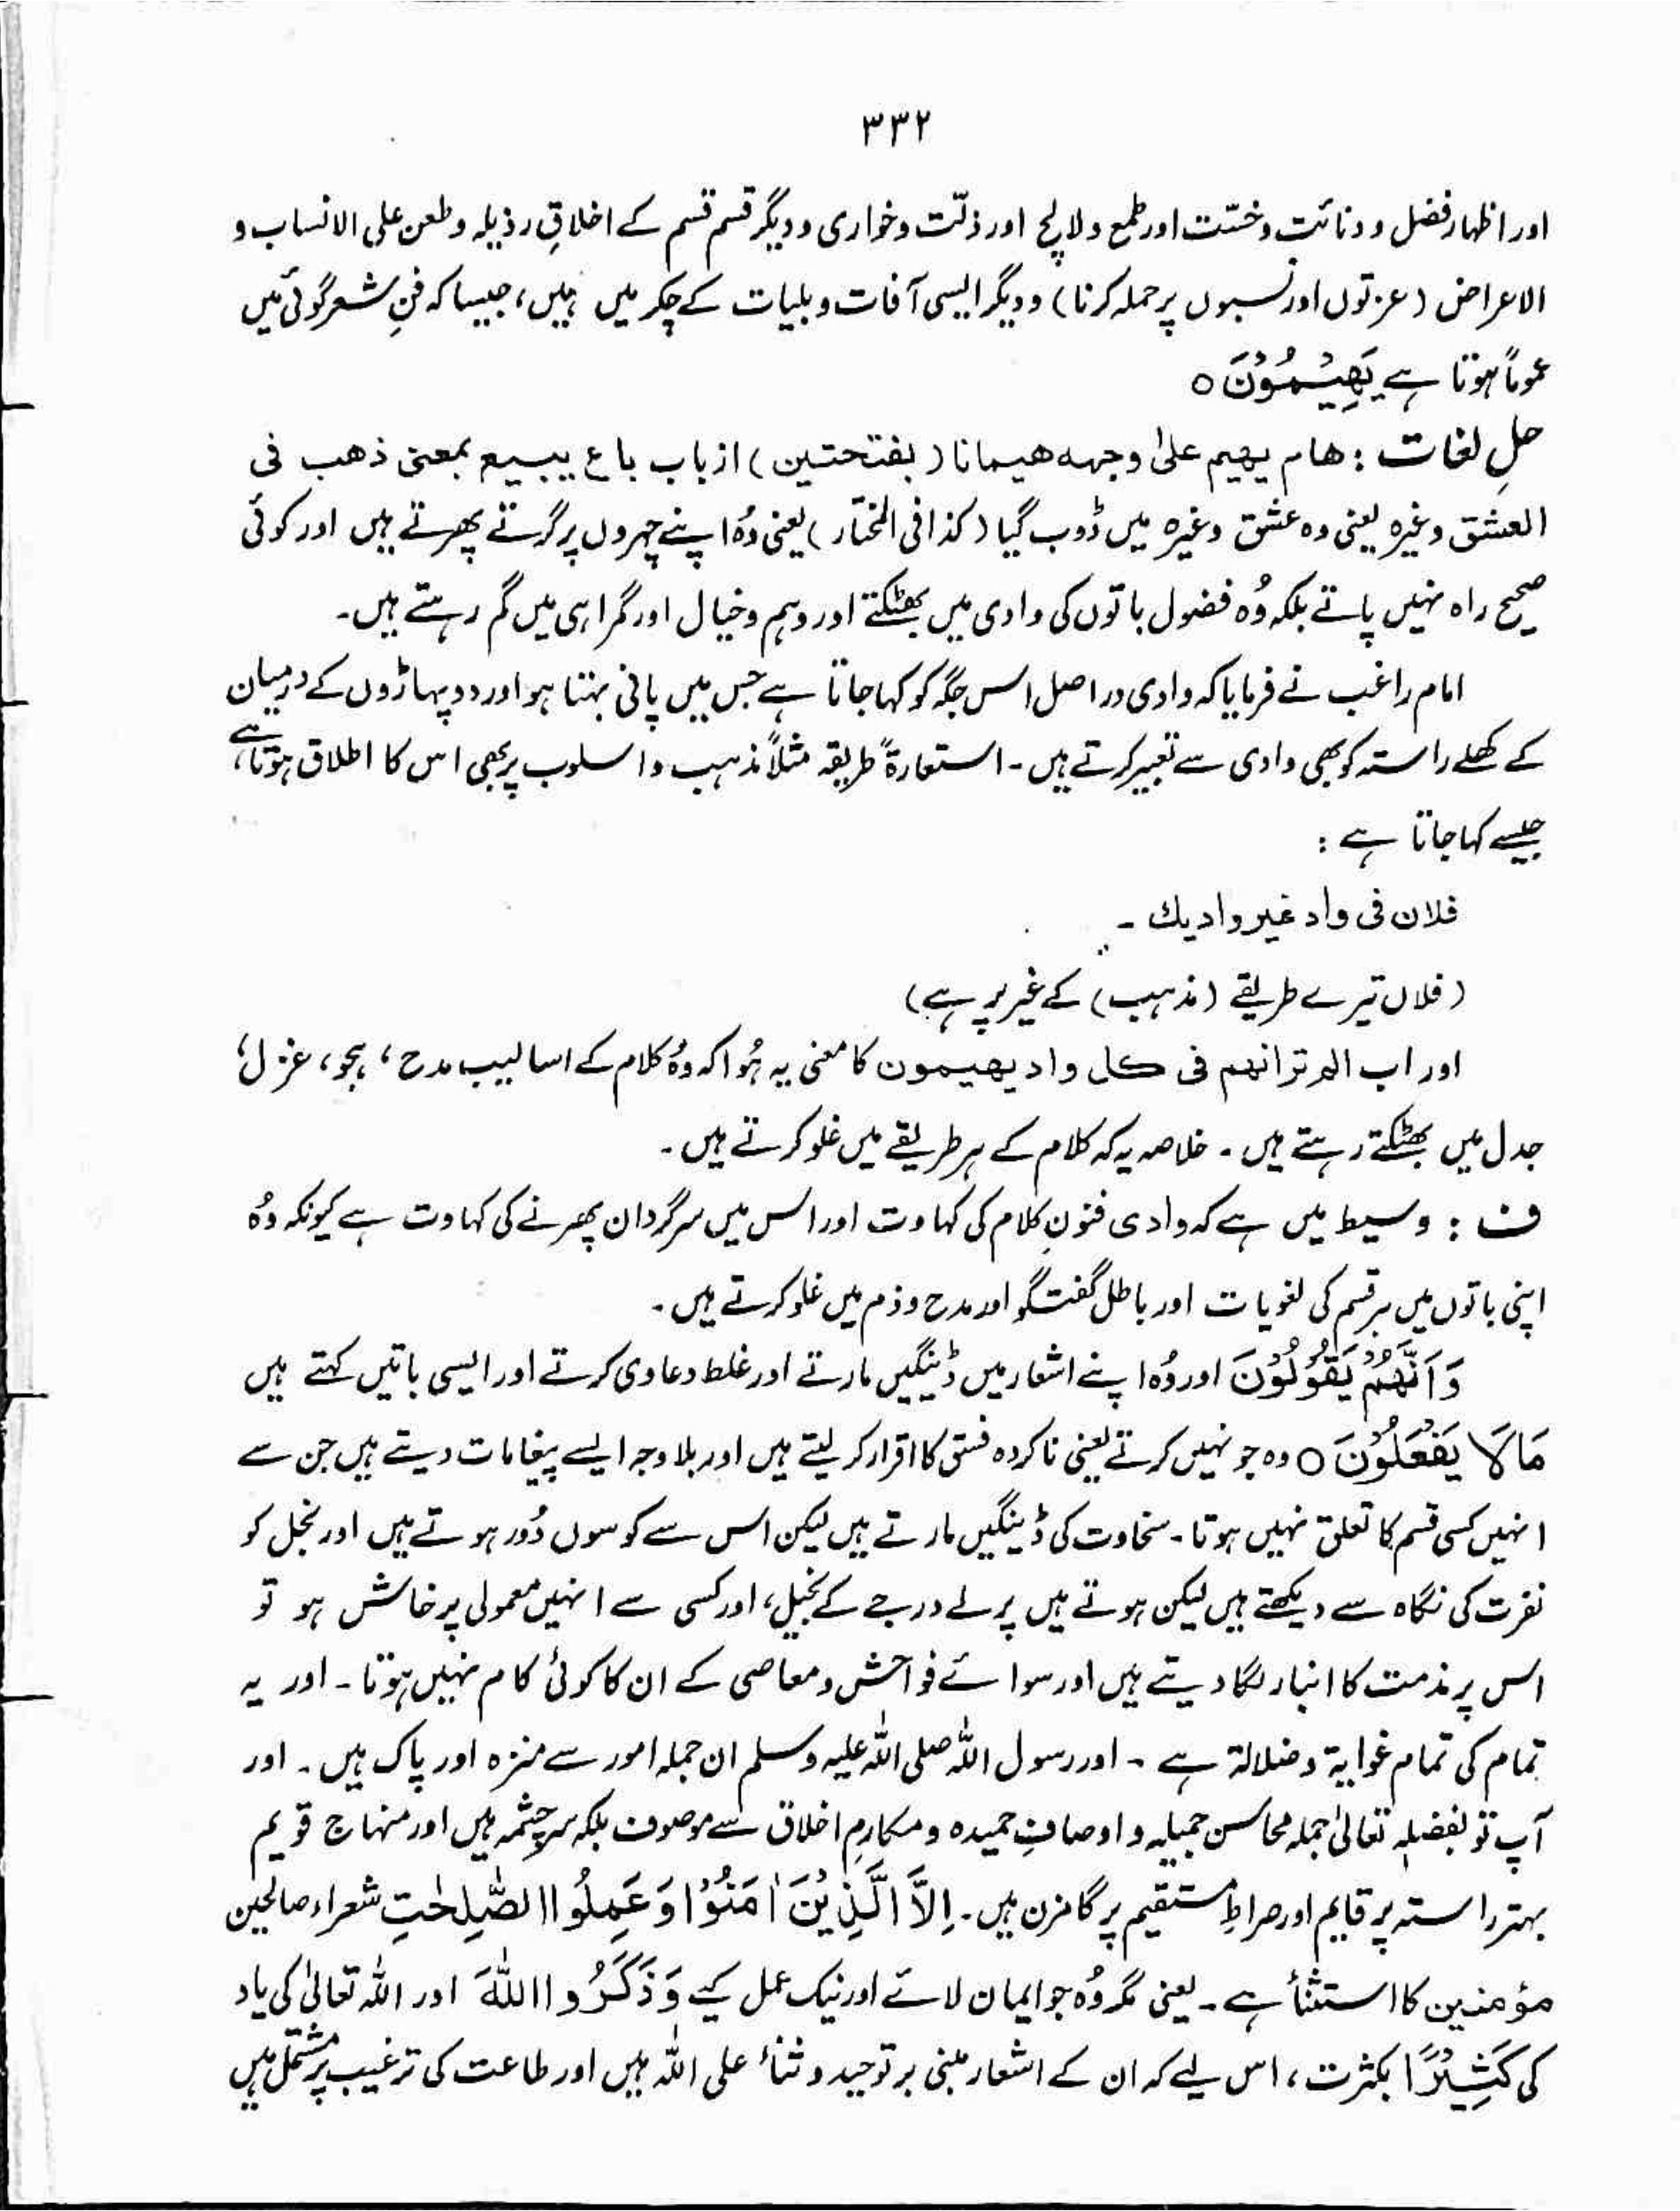 ۳۳۲
اور اظہار فضل و دنائت و خسّت اور طمع و لالچ اور ذلّت و خواری و دیگر قسم قسم کے اخلاقِ رذیلہ و طعن علی الانساب و
الاعراض (عزتوں اور نسبوں پر حملہ کرنا) و دیگر ایسی آفات و بلیات کے چکر میں ہیں، جیسا کہ فنِ شعر گوئی میں
عموماً ہوتا ہے یَهِیْمُوْنَ ○
حلِ لغات : هام یهیم علیٰ وجهه هیمانا (بفتحتین) از باب باع یبیع بمعنی ذهب فی
العشق وغیرہ یعنی وہ عشق وغیرہ میں ڈوب گیا (کذا فی المختار) یعنی وُہ اپنے چہروں پر گرتے پھرتے ہیں اور کوئی
صحیح راہ نہیں پاتے بلکہ وُہ فضول باتوں کی وادی میں بھٹکتے اور وہم و خیال اور گمراہی میں گم رہتے ہیں۔
امام راغب نے فرمایا کہ وادی دراصل اس جگہ کو کہا جاتا ہے جس میں پانی بہتا ہو اور دو پہاڑوں کے درمیان
کے کھلے راستہ کو بھی وادی سے تعبیر کرتے ہیں۔ استعارۃً طریقہ مثلاً مذہب و اسلوب پر بھی اس کا اطلاق ہوتا ہے،
جیسے کہا جاتا ہے :
فلان فی واد غیر وادیك ۔
(فلاں تیرے طریقے (مذہب) کے غیر پر ہے)
اور اب الم تر انهم فی کل واد یهیمون کا معنی یہ ہُوا کہ وُہ کلام کے اسالیب مدح، ہجو، غزل،
جدل میں بھٹکتے رہتے ہیں۔ خلاصہ یہ کہ کلام کے ہر طریقے میں غلو کرتے ہیں۔
ف : وسیط میں ہے کہ وادی فنونِ کلام کی کہاوت اور اس میں سرگردان پھرنے کی کہاوت ہے کیونکہ وُہ
اپنی باتوں میں ہر قسم کی لغویات اور باطل گفتگو اور مدح و ذم میں غلو کرتے ہیں۔
وَاَنَّهُمْ یَقُوْلُوْنَ اور وُہ اپنے اشعار میں ڈینگیں مارتے اور غلط دعاوی کرتے اور ایسی باتیں کہتے ہیں
مَا لَا یَفْعَلُوْنَ ○ وہ جو نہیں کرتے یعنی ناکردہ فسق کا اقرار کر لیتے ہیں اور بلا وجہ ایسے پیغامات دیتے ہیں جن سے
انہیں کسی قسم کا تعلق نہیں ہوتا۔ سخاوت کی ڈینگیں مارتے ہیں لیکن اس سے کوسوں دُور ہوتے ہیں اور بخل کو
نفرت کی نگاہ سے دیکھتے ہیں لیکن ہوتے ہیں پرلے درجے کے بخیل، اور کسی سے انہیں معمولی پرخاش ہو تو
اس پر مذمت کا انبار لگا دیتے ہیں اور سوائے فواحش و معاصی کے ان کا کوئی کام نہیں ہوتا۔ اور یہ
تمام کی تمام غوایۃ و ضلالۃ ہے ۔ اور رسول اللہ صلی اللہ علیہ وسلم ان جملہ امور سے منزہ اور پاک ہیں۔ اور
آپ تو بفضلہٖ تعالیٰ جملہ محاسن جمیلہ و اوصافِ حمیدہ و مکارمِ اخلاق سے موصوف بلکہ سرچشمہ ہیں اور منہاج قویم
بہتر راستہ پر قایم اور صراطِ مستقیم پر گامزن ہیں۔ اِلَّا الَّذِیْنَ اٰمَنُوْا وَعَمِلُوا الصّٰلِحٰتِ شعراء صالحین
مؤمنین کا استثنأ ہے۔ یعنی مگر وُہ جو ایمان لائے اور نیک عمل کیے وَذَکَرُوا اللّٰهَ اور اللہ تعالیٰ کی یاد
کی کَثِیْرًا بکثرت، اس لیے کہ ان کے اشعار مبنی بر توحید و ثناء علی اللہ ہیں اور طاعت کی ترغیب پر مشتمل ہیں